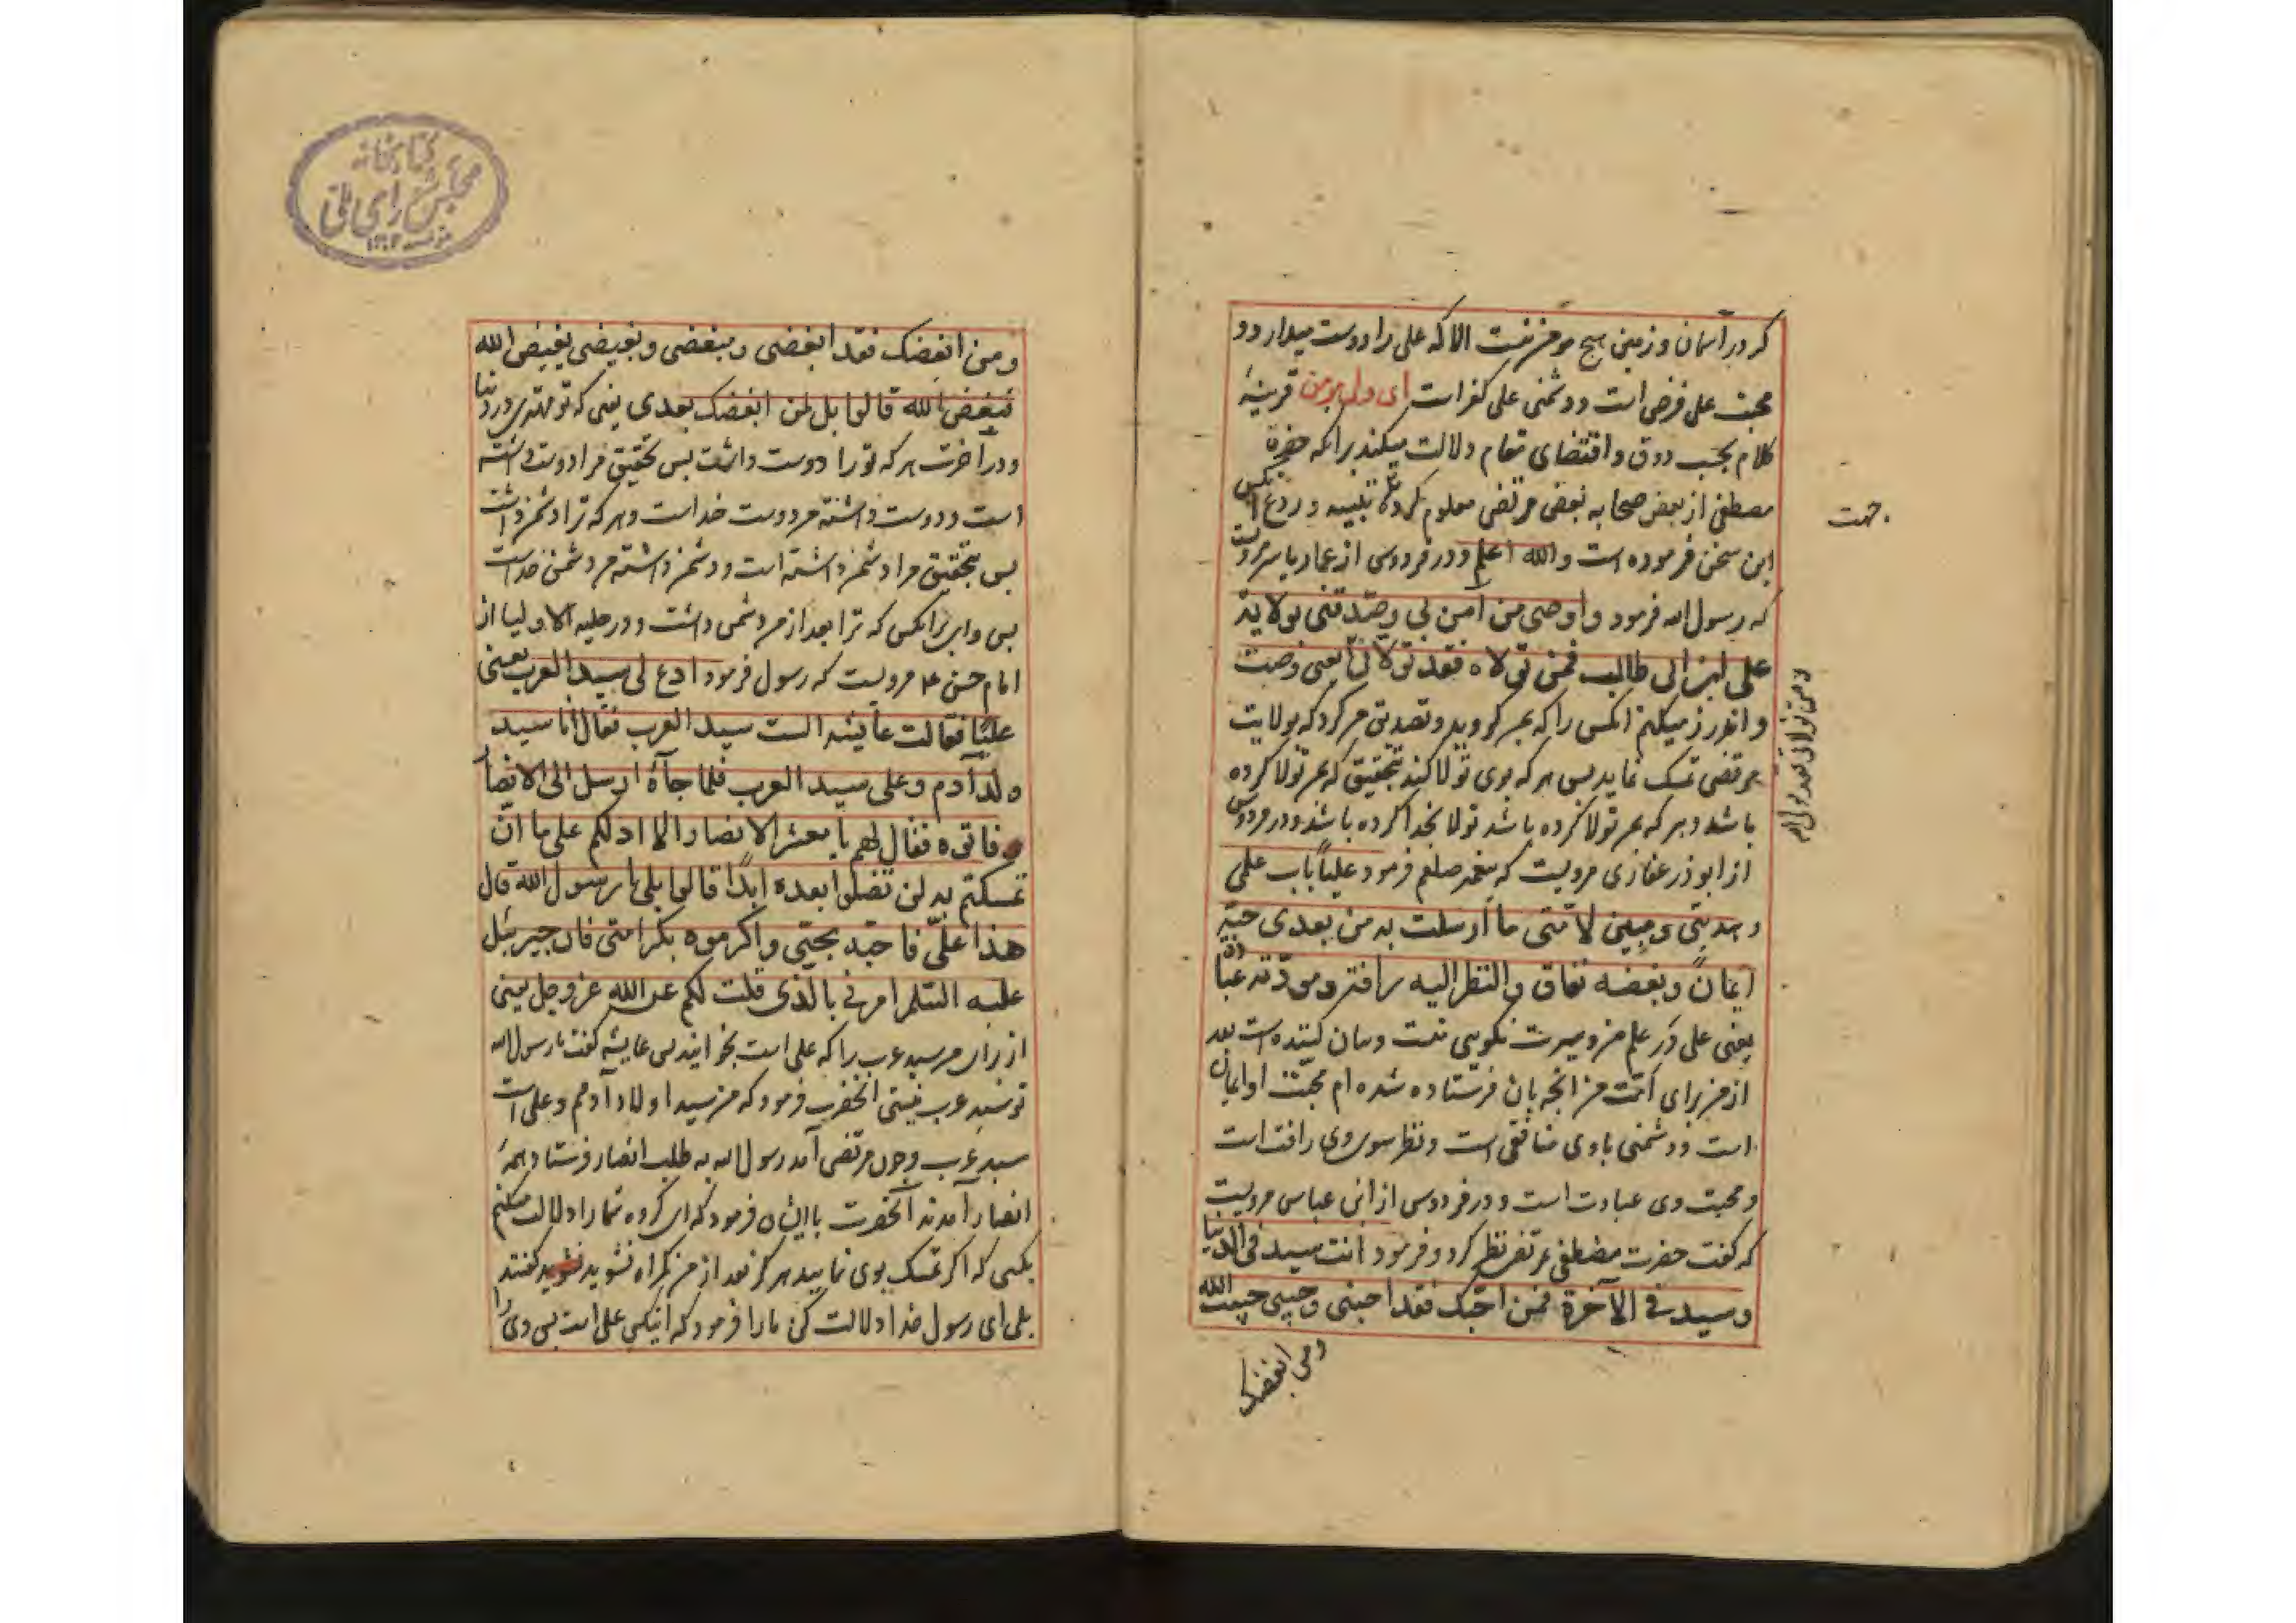 که در آسمان و زمین هیچ مؤمن نیست الا که علی را دوست میدارد و
محبت علی فرض است و دشمنی علی کفر است ای ولی مومن قرینهٔ
کلام بحسب ذوق و اقتضای مقام دلالت میکند برانکه حضرة
مصطفی از بعض صحابه بغض مرتضی معلوم کرده تنبیه و ردع آنکس
این سخن فرموده است والله اعلم و در فردوس از عمار یاسر مرویست
که رسول الله فرمود و اوصی من آمن بی و صدقنی بولایة
علی ابن ابی طالب فمن تولاه فقد تولانی یعنی وصیت
و اندرز میکنم انکس را که بمن گروید و تصدیق من کرد که بولایت
مرتضی تمسک نماید پس هر که بوی تولا کند بتحقیق که بمن تولا کرده
باشد و هر که بمن تولا کرده باشد تولا بخدا کرده باشد و در فردوس
از ابوذر غفاری مرویست که پیغمبر صلعم فرمود علیاً باب علمی
و هدیتی و مبین لامتی ما ارسلت به من بعدی حبه
ایمان و بغضه نفاق والنظر الیه رأفة و مودته عبادة
یعنی علی در علم من و سیرت نیکویی منست و بیان کننده است بعد
از من برای امت من انچه بان فرستاده شده ام محبت او ایمان
است و دشمنی باوی منافقی است و نظر سوی وی رافت است
و محبت وی عبادت است و در فردوس از ابن عباس مرویست
که گفت حضرت مصطفی بمرتضی نظر کرد و فرمود انت سید فی الدنیا
و سید فی الآخرة فمن احبک فقد احبنی و حبیبی حبیب الله
و من ابغضک
جهت
و من تولانی فقد تولی الله
کتابخانه
مجلس شورای ملی
و من ابغضک فقد ابغضنی و مبغضی و بغیضی بغیض الله
فبغض الله قالوا بل لمن ابغضک بعدی یعنی که تو مهتری در دنیا
و در آخرت هر که تو را دوست داشت پس بتحقیق مرا دوست داشته
است و دوست داشته من دوست خداست و هر که ترا دشمن داشت
پس بتحقیق مرا دشمن داشته است و دشمن داشته من دشمن خداست
پس وای برانکس که ترا بعد از من دشمن داشت و در حلیه الاولیا از
امام حسن ع مرویست که رسول فرمود ادع لی سید العرب یعنی
علیًا فقالت عایشه الست سید العرب فقال انا سید
ولد آدم و علی سید العرب فلما جآءه ارسل الی الانصار
فاتوه فقال لهم یا معشر الانصار الا ادلکم علی ما ان
تمسکتم به لن تضلوا بعده ابدًا قالوا بلی یا رسول الله قال
هذا علیّ فاحبّه بحبّی و اکرموه بکرامتی فان جبرئیل
علیه السّلم امرنی بالّذی قلت لکم عن الله عز و جل یعنی
از برای من سید عرب را که علی است بخوانید پس عایشه گفت یا رسول الله
تو سید عرب نیستی انحضرت فرمود که من سید اولاد آدمم و علی است
سید عرب و چون مرتضی آمد رسول الله به طلب انصار فرستاد همهٔ
انصار آمدند آنحضرت با ایشان فرمود که ای گروه شما را دلالت میکنم
بکسی که اگر تمسک بوی نمایید هرگز بعد از من گمراه نشوید گفتند
بلی ای رسول خدا دلالت کن ما را فرمود که اینکس علی است پس وی را